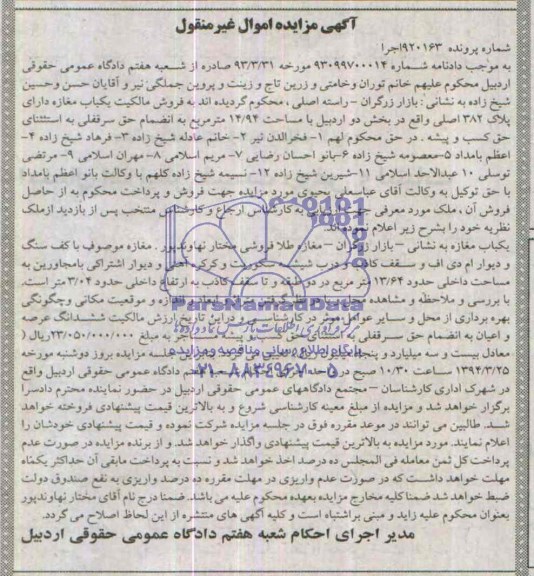 آگهی مزایده اموال غیرمنقول
شماره پرونده ۹۲۰۱۶۳اجرا
به موجب دادنامه شماره ۹۳۰۹۹۷۰۰۰۱۴ مورخه ۹۳/۳/۳۱ صادره از شعبه هفتم دادگاه عمومی حقوقی
اردبیل محکوم علیهم خانم توران وخامتی و زرین تاج و زینت و پروین جملگی نیر و آقایان حسن وحسین
شیخ زاده به نشانی : بازار زرگران - راسته اصلی ، محکوم گردیده اند به فروش مالکیت یکباب مغازه دارای
پلاک ۳۸۲ اصلی واقع در بخش دو اردبیل با مساحت ۱۴/۹۴ مترمربع به انضمام حق سرقفلی به استثنای
حق کسب و پیشه . در حق محکوم لهم ۱- فخرالدن نیر ۲- خانم عادله شیخ زاده ۳- فرهاد شیخ زاده ۴-
اعظم بامداد ۵-معصومه شیخ زاده ۶-بانو احسان رضایی ۷-مریم اسلامی ۸- مهران اسلامی ۹- مرتضی
توسلی ۱۰ عبدالاحد اسلامی ۱۱-شیرین شیخ زاده ۱۲- نسیمه شیخ زاده کلهم با وکالت بانو اعظم بامداد
با حق توکیل به وکالت آقای عباسعلی یحیوی مورد مزایده جهت فروش و پرداخت محکوم به از حاصل
فروش آن ، ملک مورد معرفی جهت به کارشناس ارجاع و کارشناس منتخب پس از بازدید ازملک
نظریه خود را بشرح زیر اعلام نموده اند.
یکباب مغازه به نشانی - بازار زرگران - مغازه طلا فروشی مختار نهاوندپور . مغازه موصوف با کف سنگ
و دیوار ام دی اف و سقف کاذب و درب شیشه سکوریت و کرکره و دیوار اشتراکی بامجاورین به
مساحت داخلی حدود ۱۳/۶۴ متر مربع در دو طبقه و تا سقف کاذب به ارتفاع داخلی حدود ۳/۰۴ متر است.
با بررسی و ملاحظه و مشاهده محل و موقعیت مکانی وچگونگی
بهره برداری از محل و سایر عوامل موثر در کارشناسی و در این تاریخ ارزش مالکیت ششدانگ عرصه
و اعیان به انضمام حق سرقفلی به مبلغ ۲۳/۰۵۰/۰۰۰/۰۰۰ریال (
معادل بیست و سه میلیارد و پنجاه جلسه مزایده بروز دوشنبه مورخه
۱۳۹۴/۳/۲۵ ساعت ۱۰/۳۰ صبح در دادگاه عمومی حقوقی اردبیل واقع
در شهرک اداری کارشناسان - مجتمع دادگاههای عمومی حقوقی اردبیل در حضور نماینده محترم دادسرا
برگزار خواهد شد و مزایده از مبلغ معینه کارشناسی شروع و به بالاترین قیمت پیشنهادی فروخته خواهد
شد. طالبین می توانند در موعد مقرره فوق در جلسه مزایده شرکت نموده و قیمت پیشنهادی خودشان را
اعلام نمایند. مورد مزایده به بالاترین قیمت پیشنهادی واگذار خواهد شد. و از برنده مزایده در صورت عدم
پرداخت کل ثمن معامله فی المجلس ده درصد اخذ خواهد شد و نسبت به پرداخت مابقی آن حداکثر یکماه
مهلت خواهد داشت که در صورت عدم واریزی در مهلت مقرره ده درصد واریزی به نفع صندوق دولت
ضبط خواهد شد ضمنا کلیه مخارج مزایده بعهده محکوم علیه می باشد. ضمنا درج نام آقای مختار نهاوندپور
بعنوان محکوم علیه زاید و مبنی براشتباه است و کلیه آگهی های منتشره از این لحاظ اصلاح می گردد.
مدیر اجرای احکام شعبه هفتم دادگاه عمومی حقوقی اردبیل
ParsNamadData
پایگاه اطلاع رسانی مناقصه و مزایده
۰۲۱-۸۸۳۴۹۶۷۰-۵